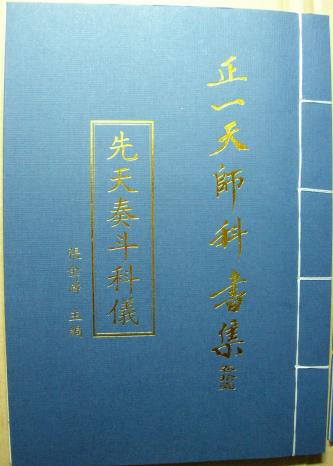 正一天師科書集
先天奏斗科儀
主編